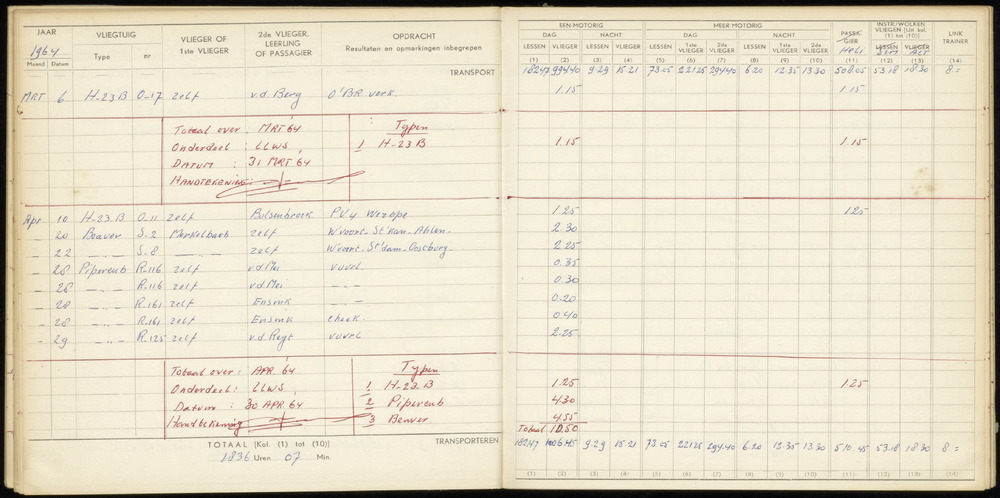 JAAR VLIEGTUIG VLIEGER OF 1ste VLIEGER 2de VLIEGER, LEERLING OF PASSAGIER OPDRACHT Resultaten en opmerkingen inbegrepen
1964 Type nr
Maand Datum
TRANSPORT
MRT 6 H-23 B O-17 zelf v.d. Berg O'BR verk.
Totaal over MRT '64 Typen
Onderdeel : LLWS 1 H-23 B
DATUM : 31 MRT 64
HANDTEKENING:
Apr 10 H-23.B O-11 zelf PV4
- 20 Beaver S-2 zelf
- 22 - - - S-8 - - - zelf
- 26 Pipercub R-116 zelf v.d Mei vuurl.
- 26 - - - R-116 zelf v.d Mei - - -
- 28 - - - R-161 zelf Ensink - - -
- 28 - - - R-161 zelf Ensink check
- 29 - - - R-125 zelf v.d. Regt vuurl
Totaal over: APR '64 Typen
Onderdeel: LLWS 1 H-23.B
Datum : 30 APR 64 2 Pipercub
Handtekening 3 Beaver
TOTAAL [Kol. (1) tot (10)] TRANSPORTEREN
1836 Uren 07 Min.
EEN-MOTORIG MEER MOTORIG PASSA-GIER INSTR./WOLKEN VLIEGEN [Uit kol. (1) tot (10)] LINK TRAINER
DAG NACHT DAG NACHT Heli
LESSEN VLIEGER LESSEN VLIEGER LESSEN 1ste VLIEGER 2de VLIEGER LESSEN 1ste VLIEGER 2de VLIEGER LESSEN VLIEGER
(1) (2) (3) (4) (5) (6) (7) (8) (9) (10) (11) (12) (13) (14)
182.47 994.40 9.29 15.21 73.05 221.25 294.40 6.20 12.35 13.30 508.05 53.18 18.30 8.=
1.15 1.15
1.15 1.15
1.25 1.25
2.30
2.25
0.35
0.30
0.20
0.40
2.25
1.25 1.25
4.30
4.55
Totaal 10.50
182.47 1006.45 9.29 15.21 73.05 221.25 294.40 6.20 12.35 13.30 510.45 53.18 18.30 8.=
(1) (2) (3) (4) (5) (6) (7) (8) (9) (10) (11) (12) (13) (14)